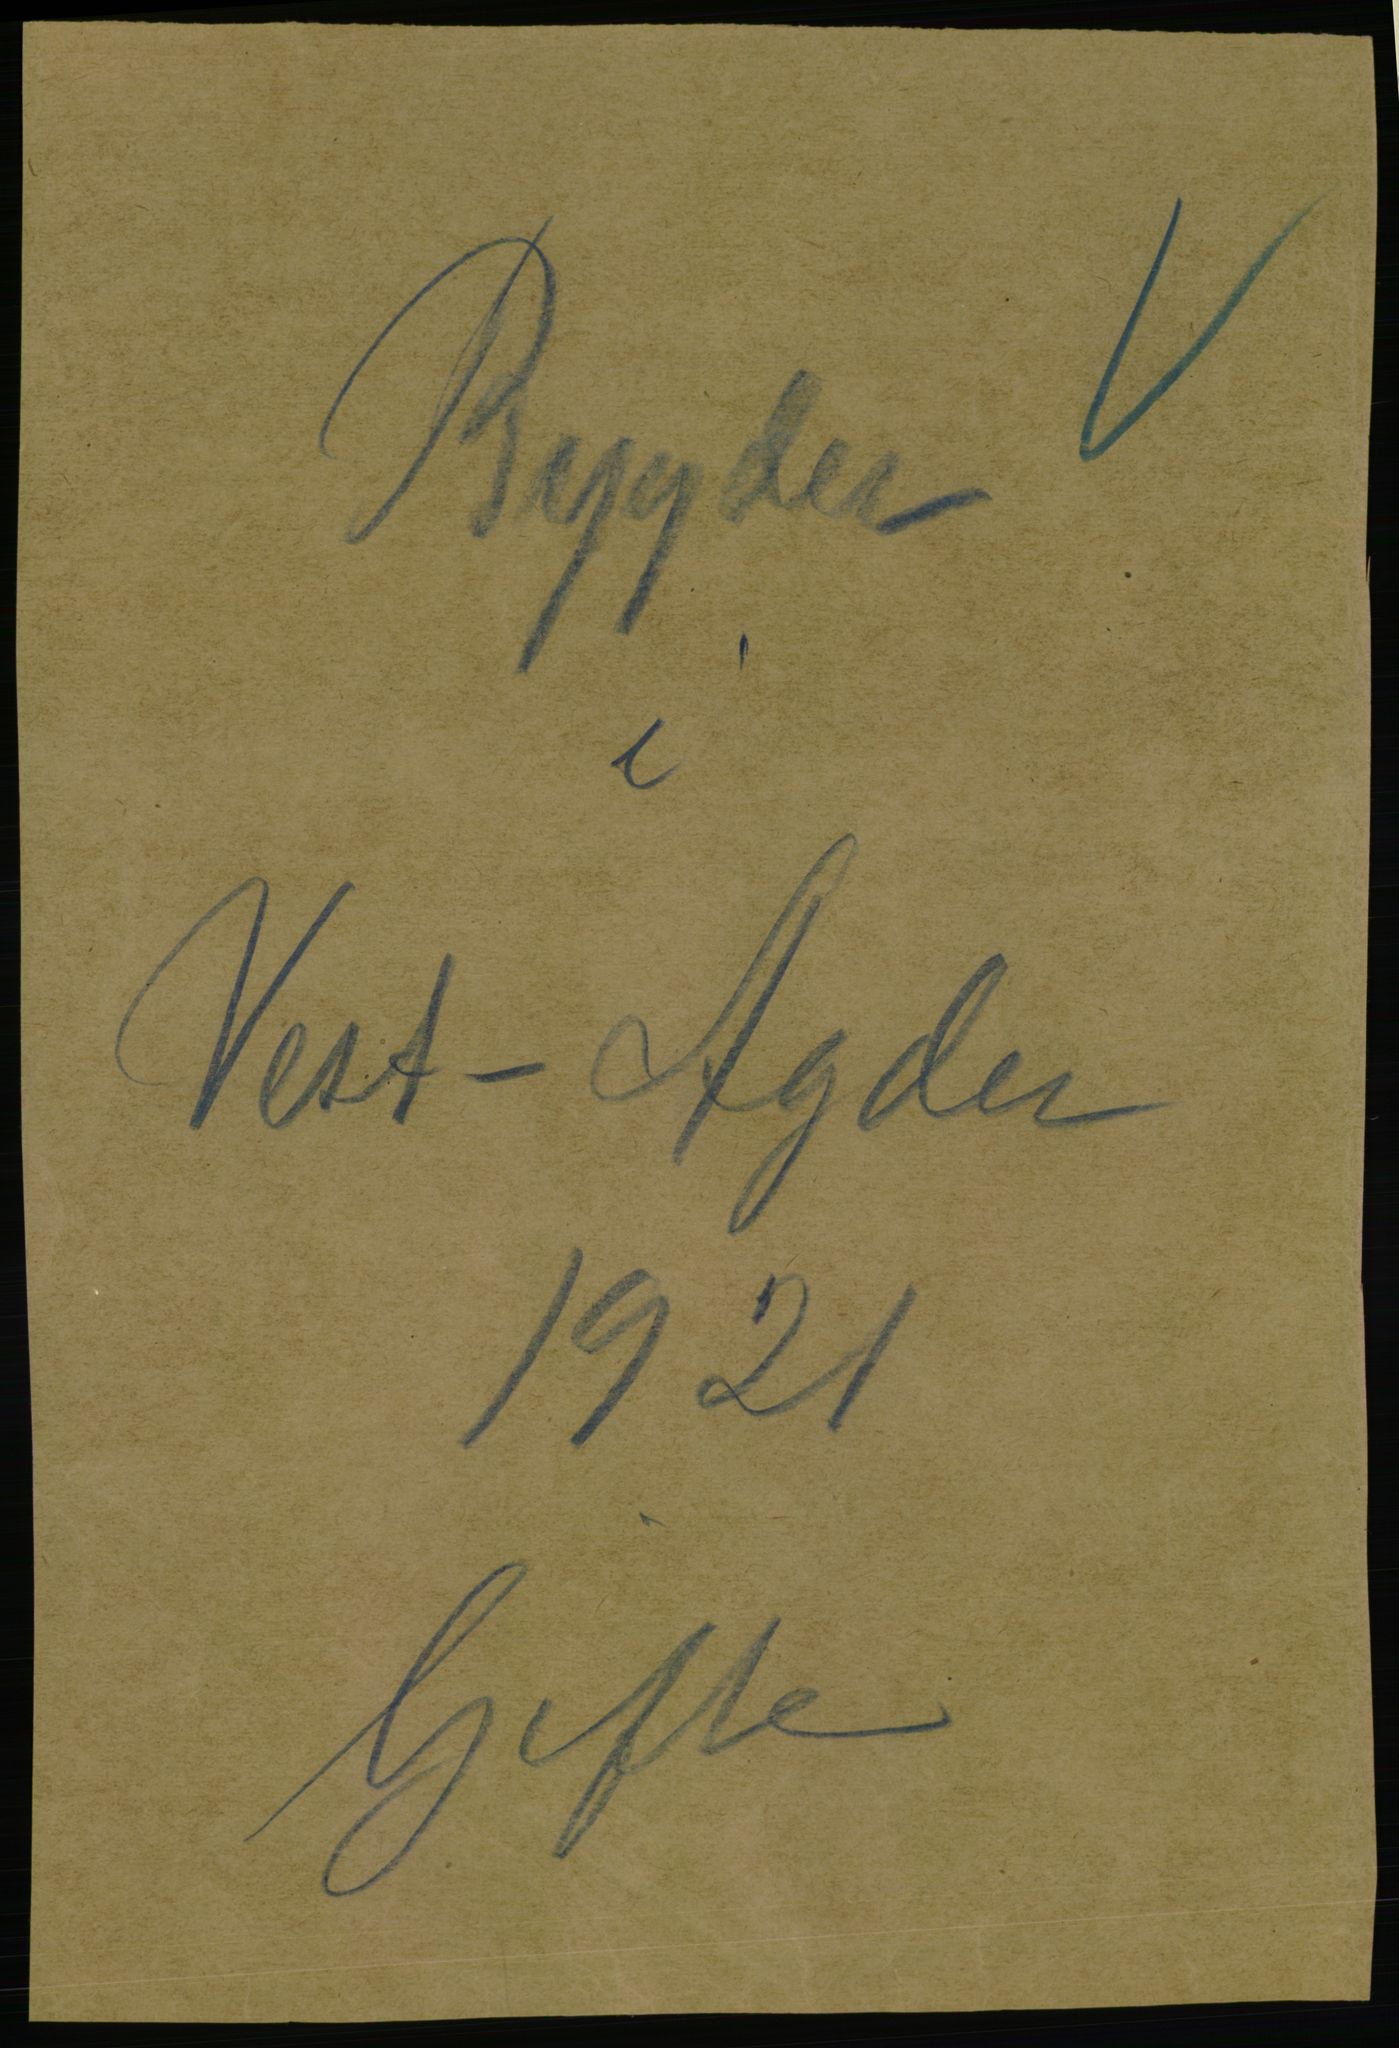 Bygder V
i
Vest-Agder
1921
Gifte